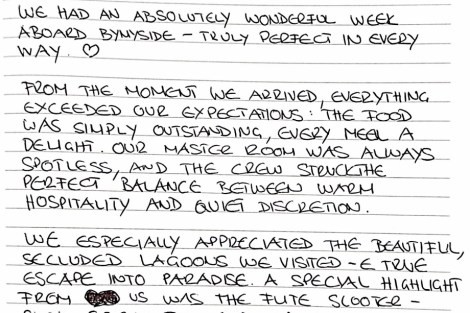 WE HAD AN ABSOLUTELY WONDERFUL WEEK
ABOARD BYMYSIDE - TRULY PERFECT IN EVERY
WAY. ♡
FROM THE MOMENT WE ARRIVED, EVERYTHING
EXCEEDED OUR EXPECTATIONS: THE FOOD
WAS SIMPLY OUTSTANDING, EVERY MEAL A
DELIGHT. OUR MASTER ROOM WAS ALWAYS
SPOTLESS, AND THE CREW STRUCKTHE
PERFECT BALANCE BETWEEN WARM
HOSPITALITY AND QUIET DISCRETION.
WE ESPECIALLY APPRECIATED THE BEAUTIFUL,
SECLUDED LAGOONS WE VISITED - E TRUE
ESCAPE INTO PARADISE. A SPECIAL HIGHLIGHT
FROM US WAS THE FLITE SCOOTER -